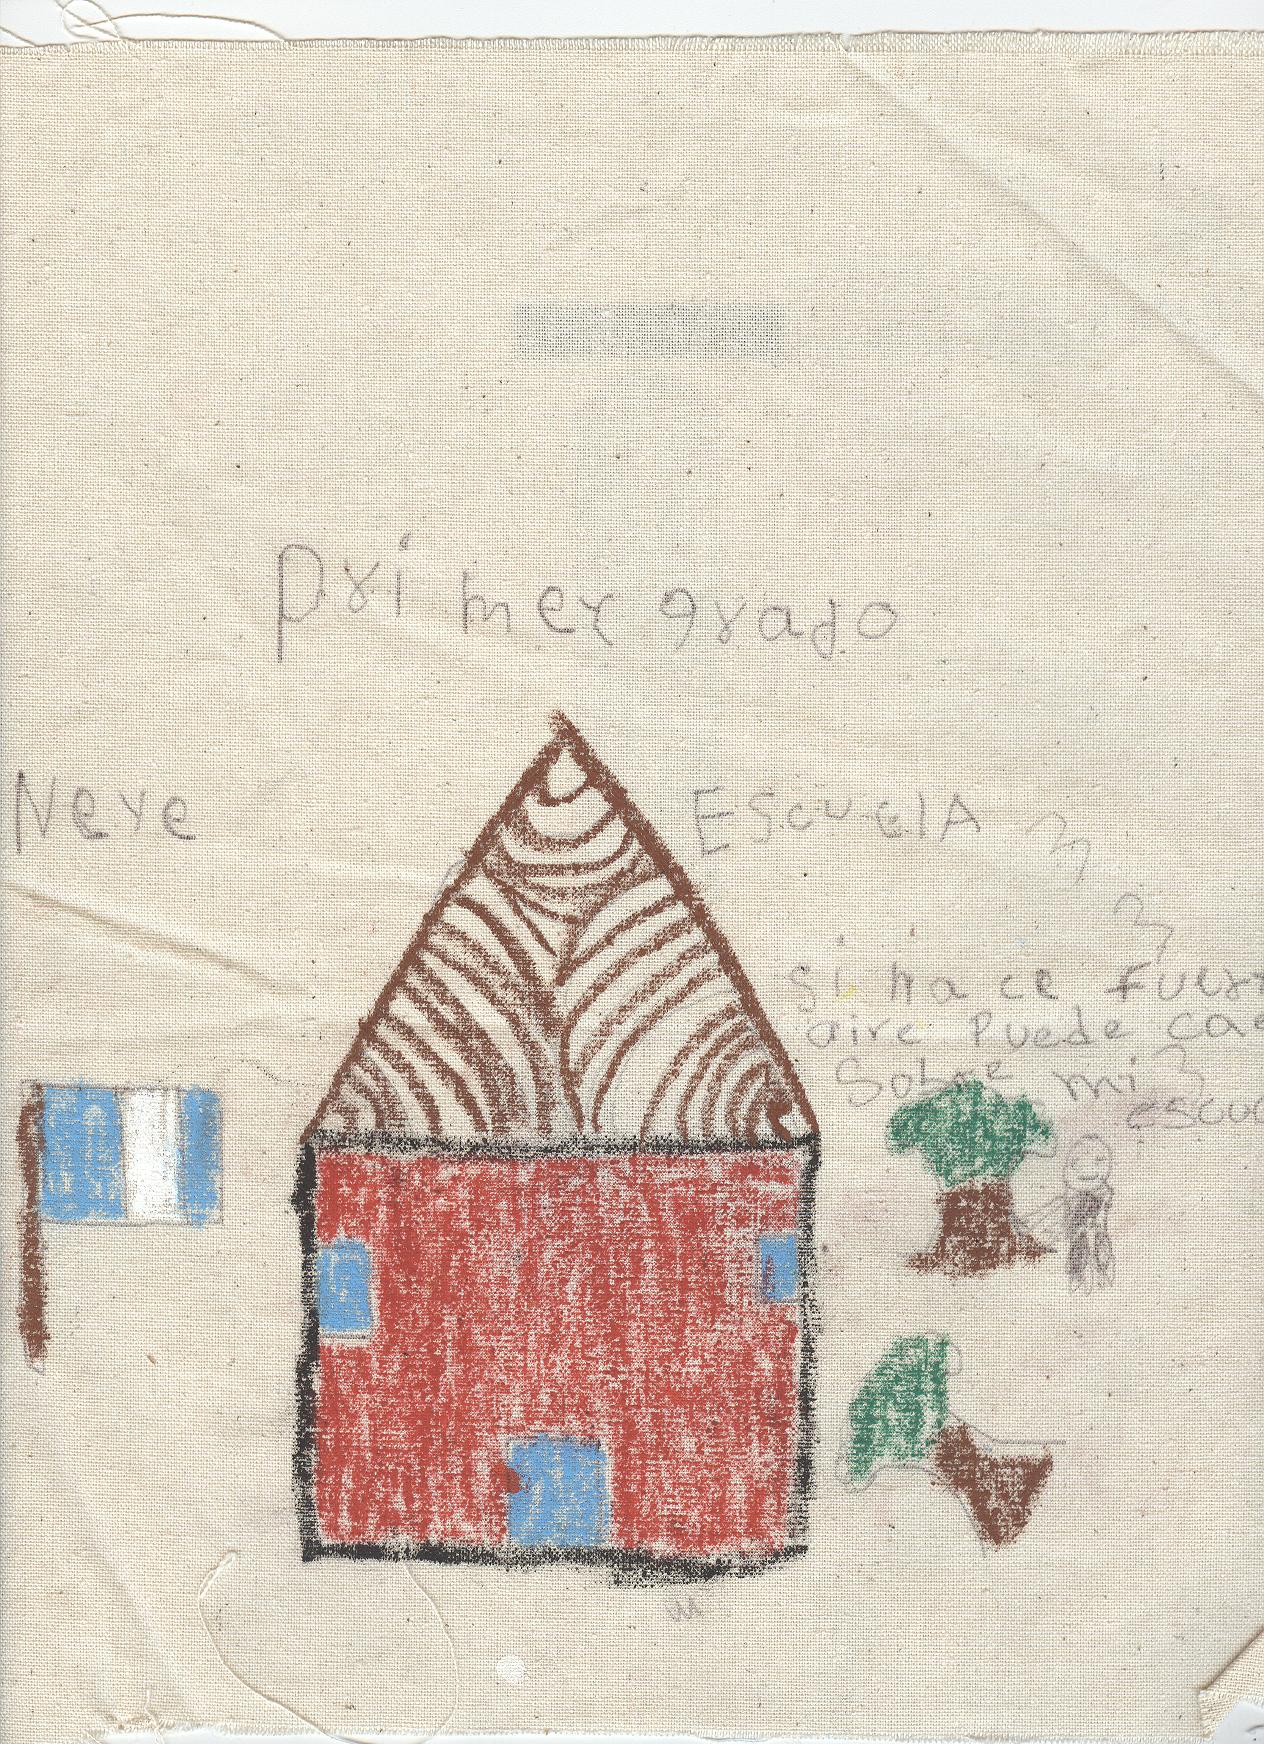 primer grado
Nere
EscuelA
si hace fuer
aire puede cae
Sobre mi
escue